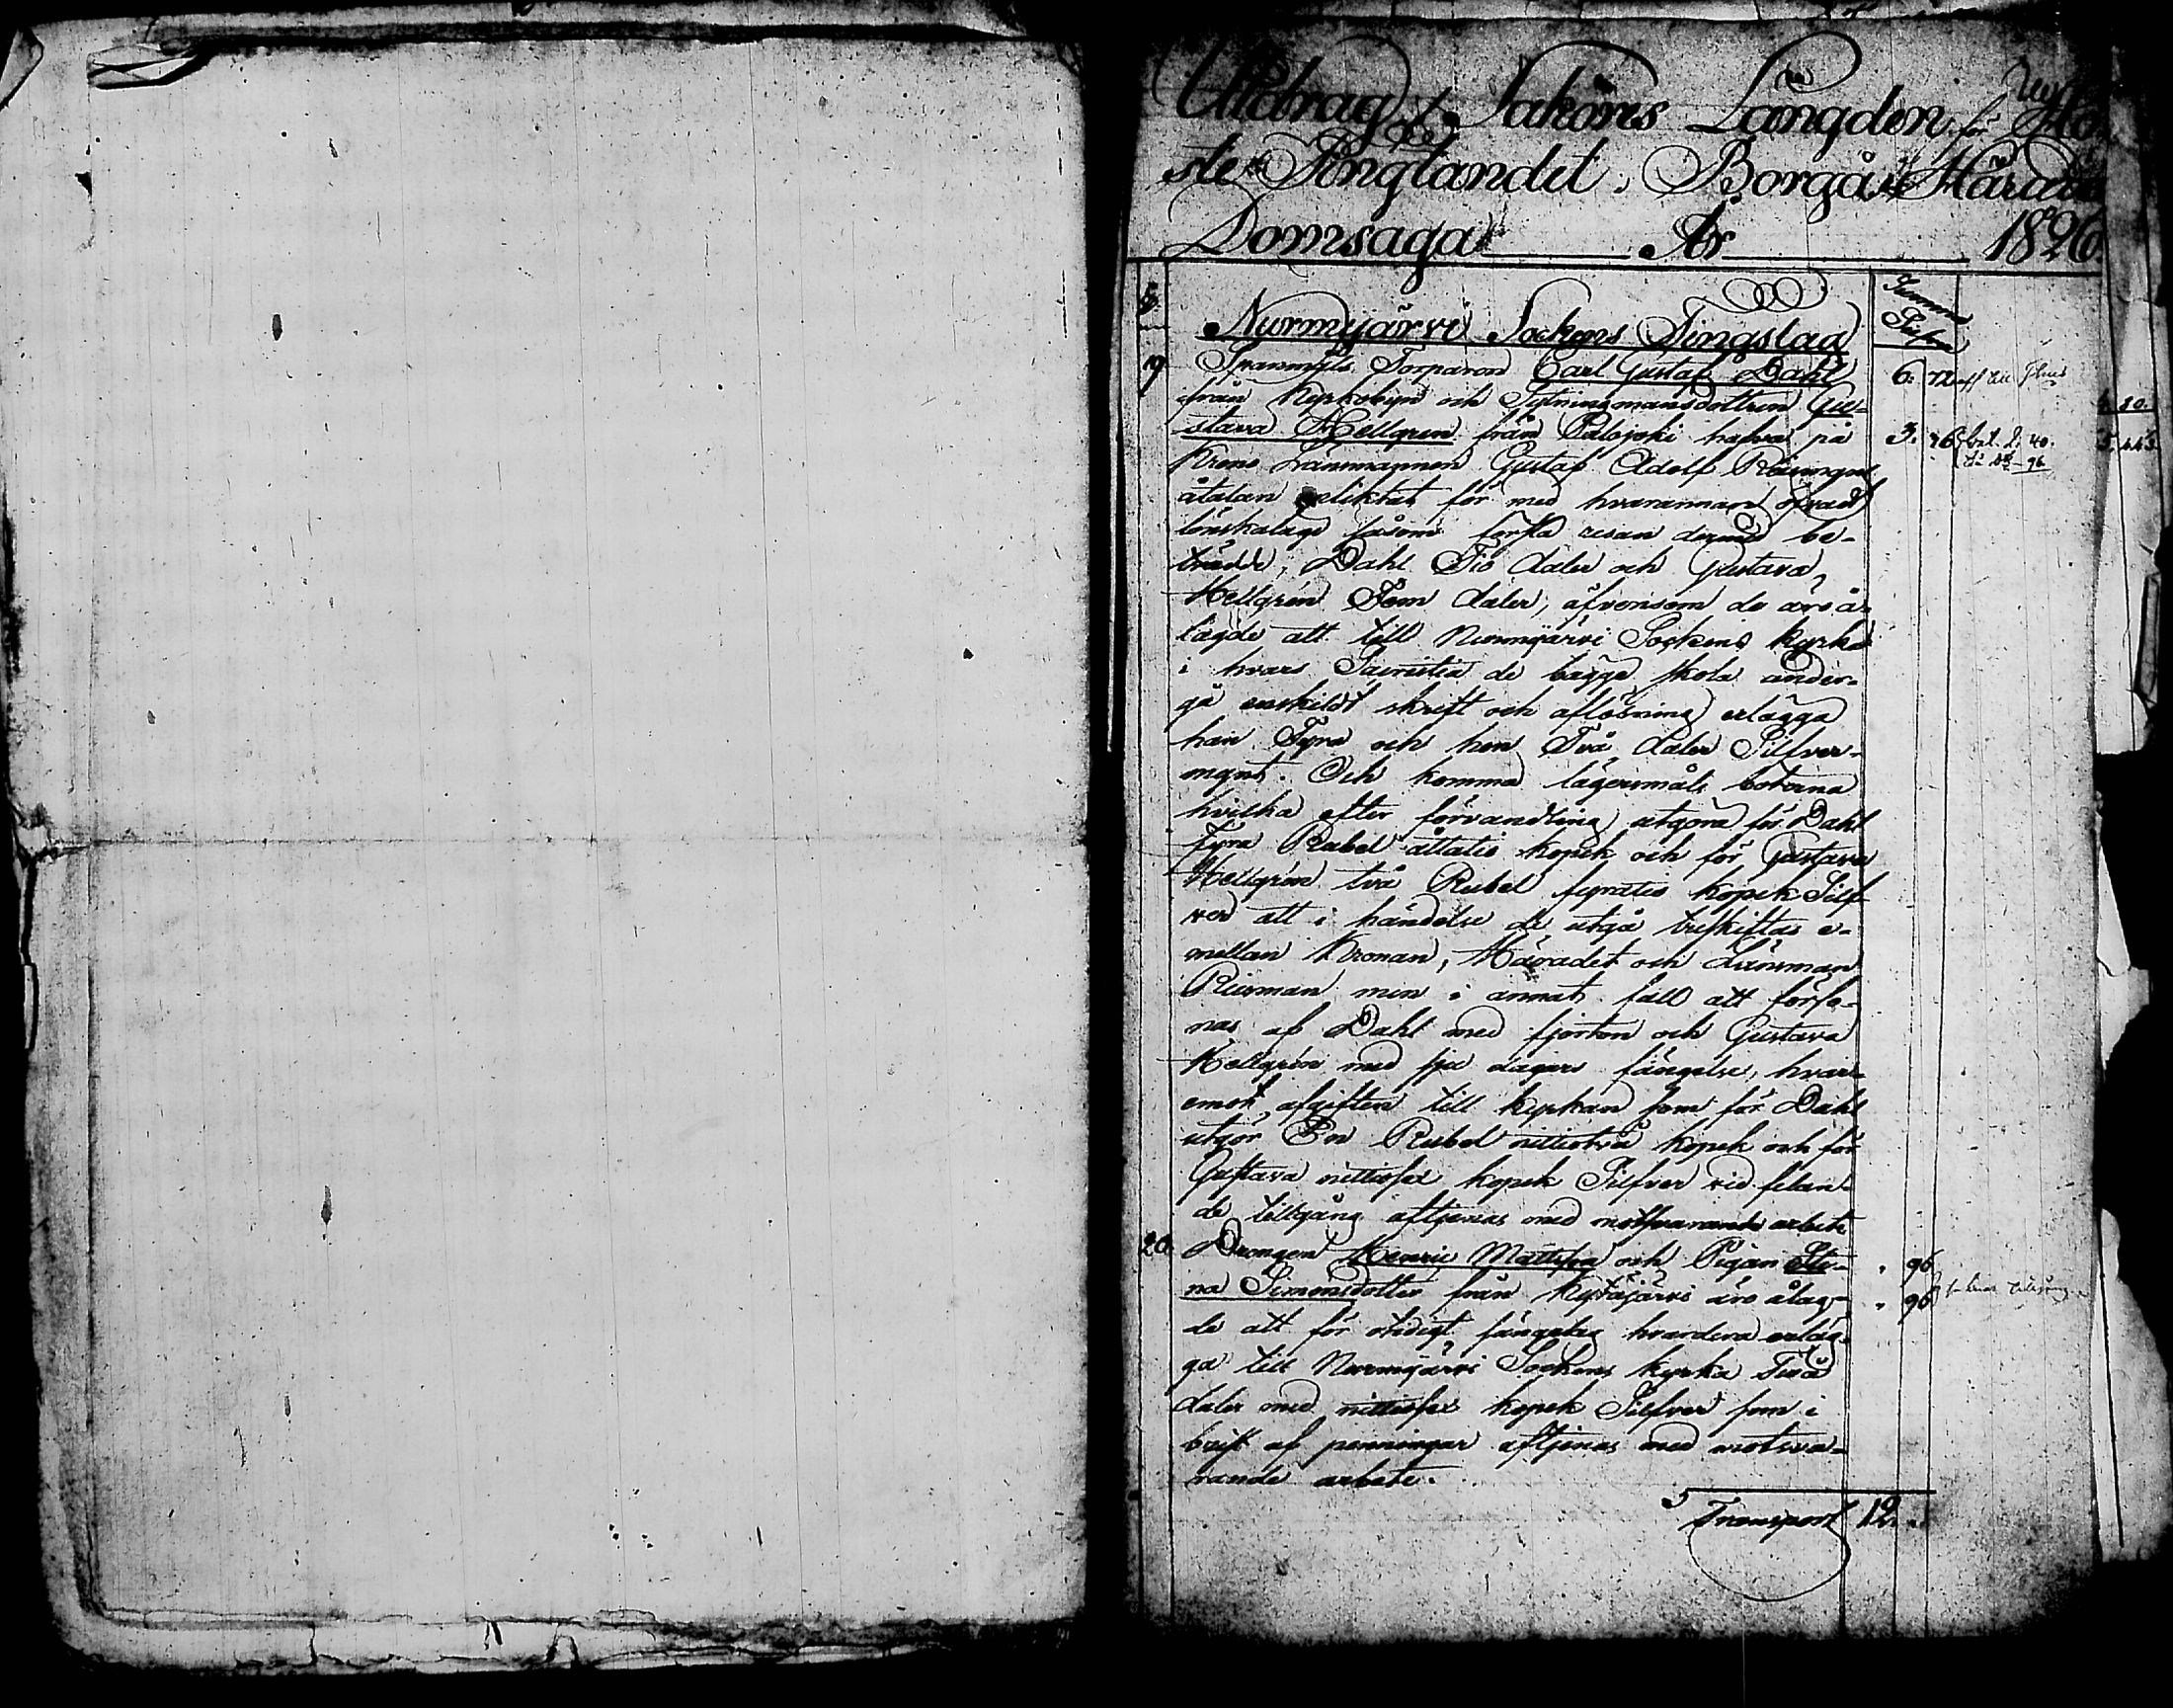 Utdrag Saköres Längden för Hö-
ste Tingtandet i Borgå Härads
Domsaga År 1826
Summa
Silfver
Nurmijärvi Sockens Tingslag
9 Torparen Carl Gustaf Dahl 6. 72
från Kyrkobyn och Sytningmansdottren Gu-
stava Hellgren från Palojoki hafva på 3. 36 bet. 2. 40.
Krono Länsmannen Gustaf Adolf 96
åtalan pliktat för med hvarannan öfvadt
lönskalage såsom första resan dermed be-
trädde, Dahl Tio daler och Gustava
Hellgrén Fem daler, äfvensom de äro å-
lagde att till Nurmijärvi Sockens kyrka
i hvars Sacristia de bägge skola under-
gå enskildt skrift och aflösning erlägga
han Fyra och hon Två daler Silfver-
mynt. Och komma lägersmåls böterna
hvilka efter förvandling utgöra för Dahl
fyra Rubel åttatio kopek och för Gustava
Hellgrén två Rubel fyratio kopek Silf-
ver att i händelse de utgå treskiftas e-
mellan Kronan, Häradet och Länsman
men i annat fall att förso-
nas af Dahl med fjorton och Gustava
Hellgrén med sju dagars fängelse, hvar-
emot afgiften till kyrkan som för Dahl
utgör En Rubel nittiotvå kopek och för
Gustava nittiosex kopek Silfver vid felan-
de tillgång aftjenas med motsvarande arbete
20. Drengen Henric Mattsson och Pigan Sti- 96
na Simonsdotter från Kytäjärvi äro ålag- 96
de att för otidigt sänglag hvardera erläg-
ga till Nurmijärvi Sockens kyrka Två
daler med nittiosex kopek Silfver som i
brist af penningar aftjenas med motsva-
rande arbete.
Transport 12.